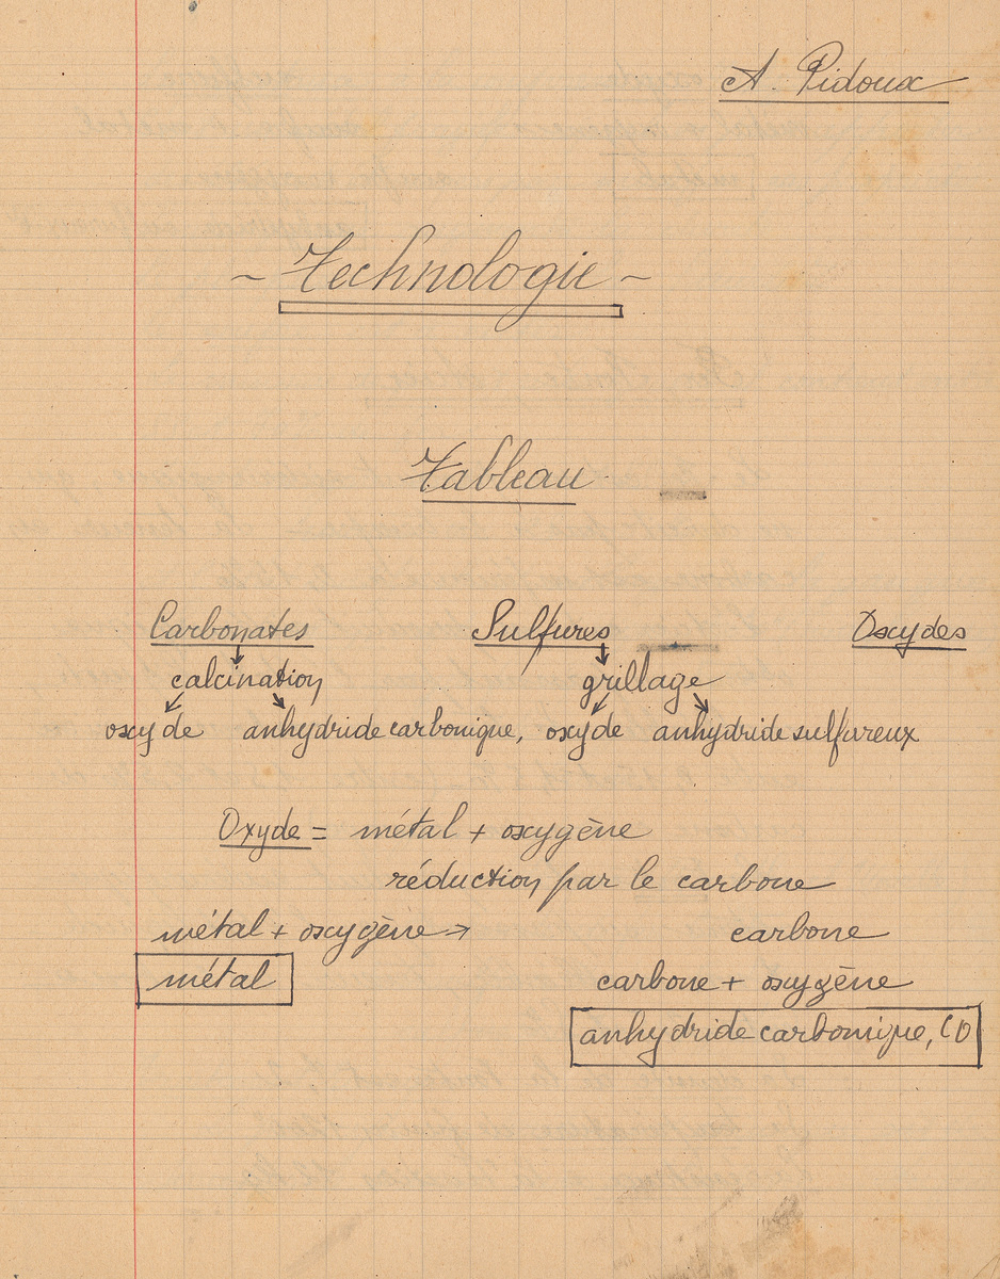 A. Pidoux
~ Technologie ~
Tableau
Carbonates Sulfures Oxydes
calcination grillage
oxyde anhydride carbonique, oxyde anhydride sulfureux
Oxyde = métal + oxygène
réduction par le carbone
métal + oxygène → carbone
métal carbone + oxygène
anhydride carbonique, CO